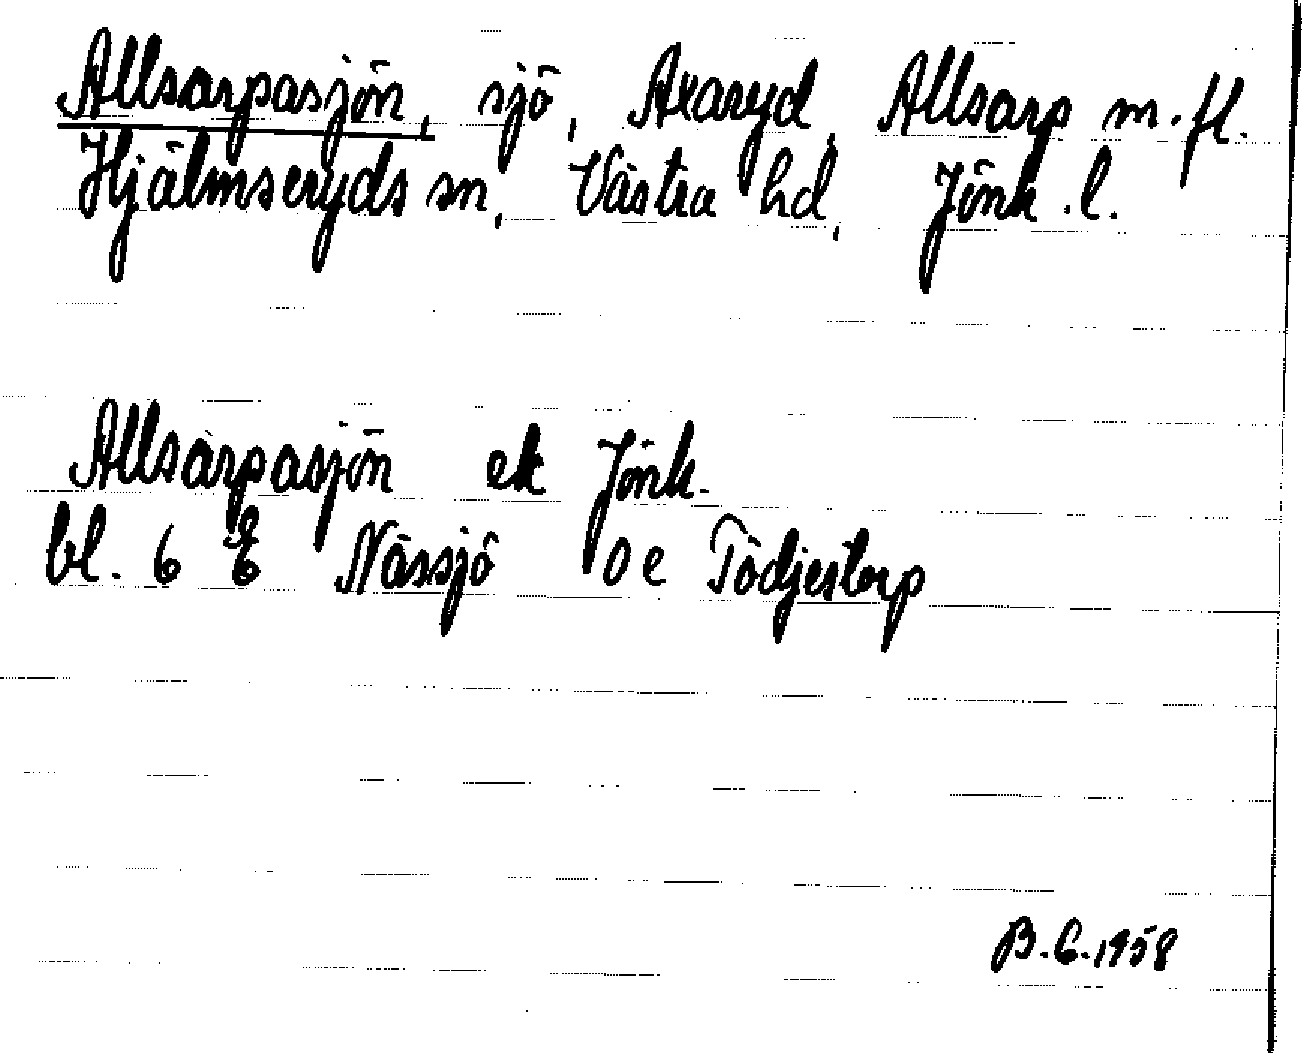 Allsarpasjön, sjö, Axaryd, Allsarp m.fl.
Hjälmseryds sn, Västra hd, Jönk.l.
Allsarpasjön ek Jönk.
bl. 6 E Nässjö 0 e Tödjestorp
B.G.1958